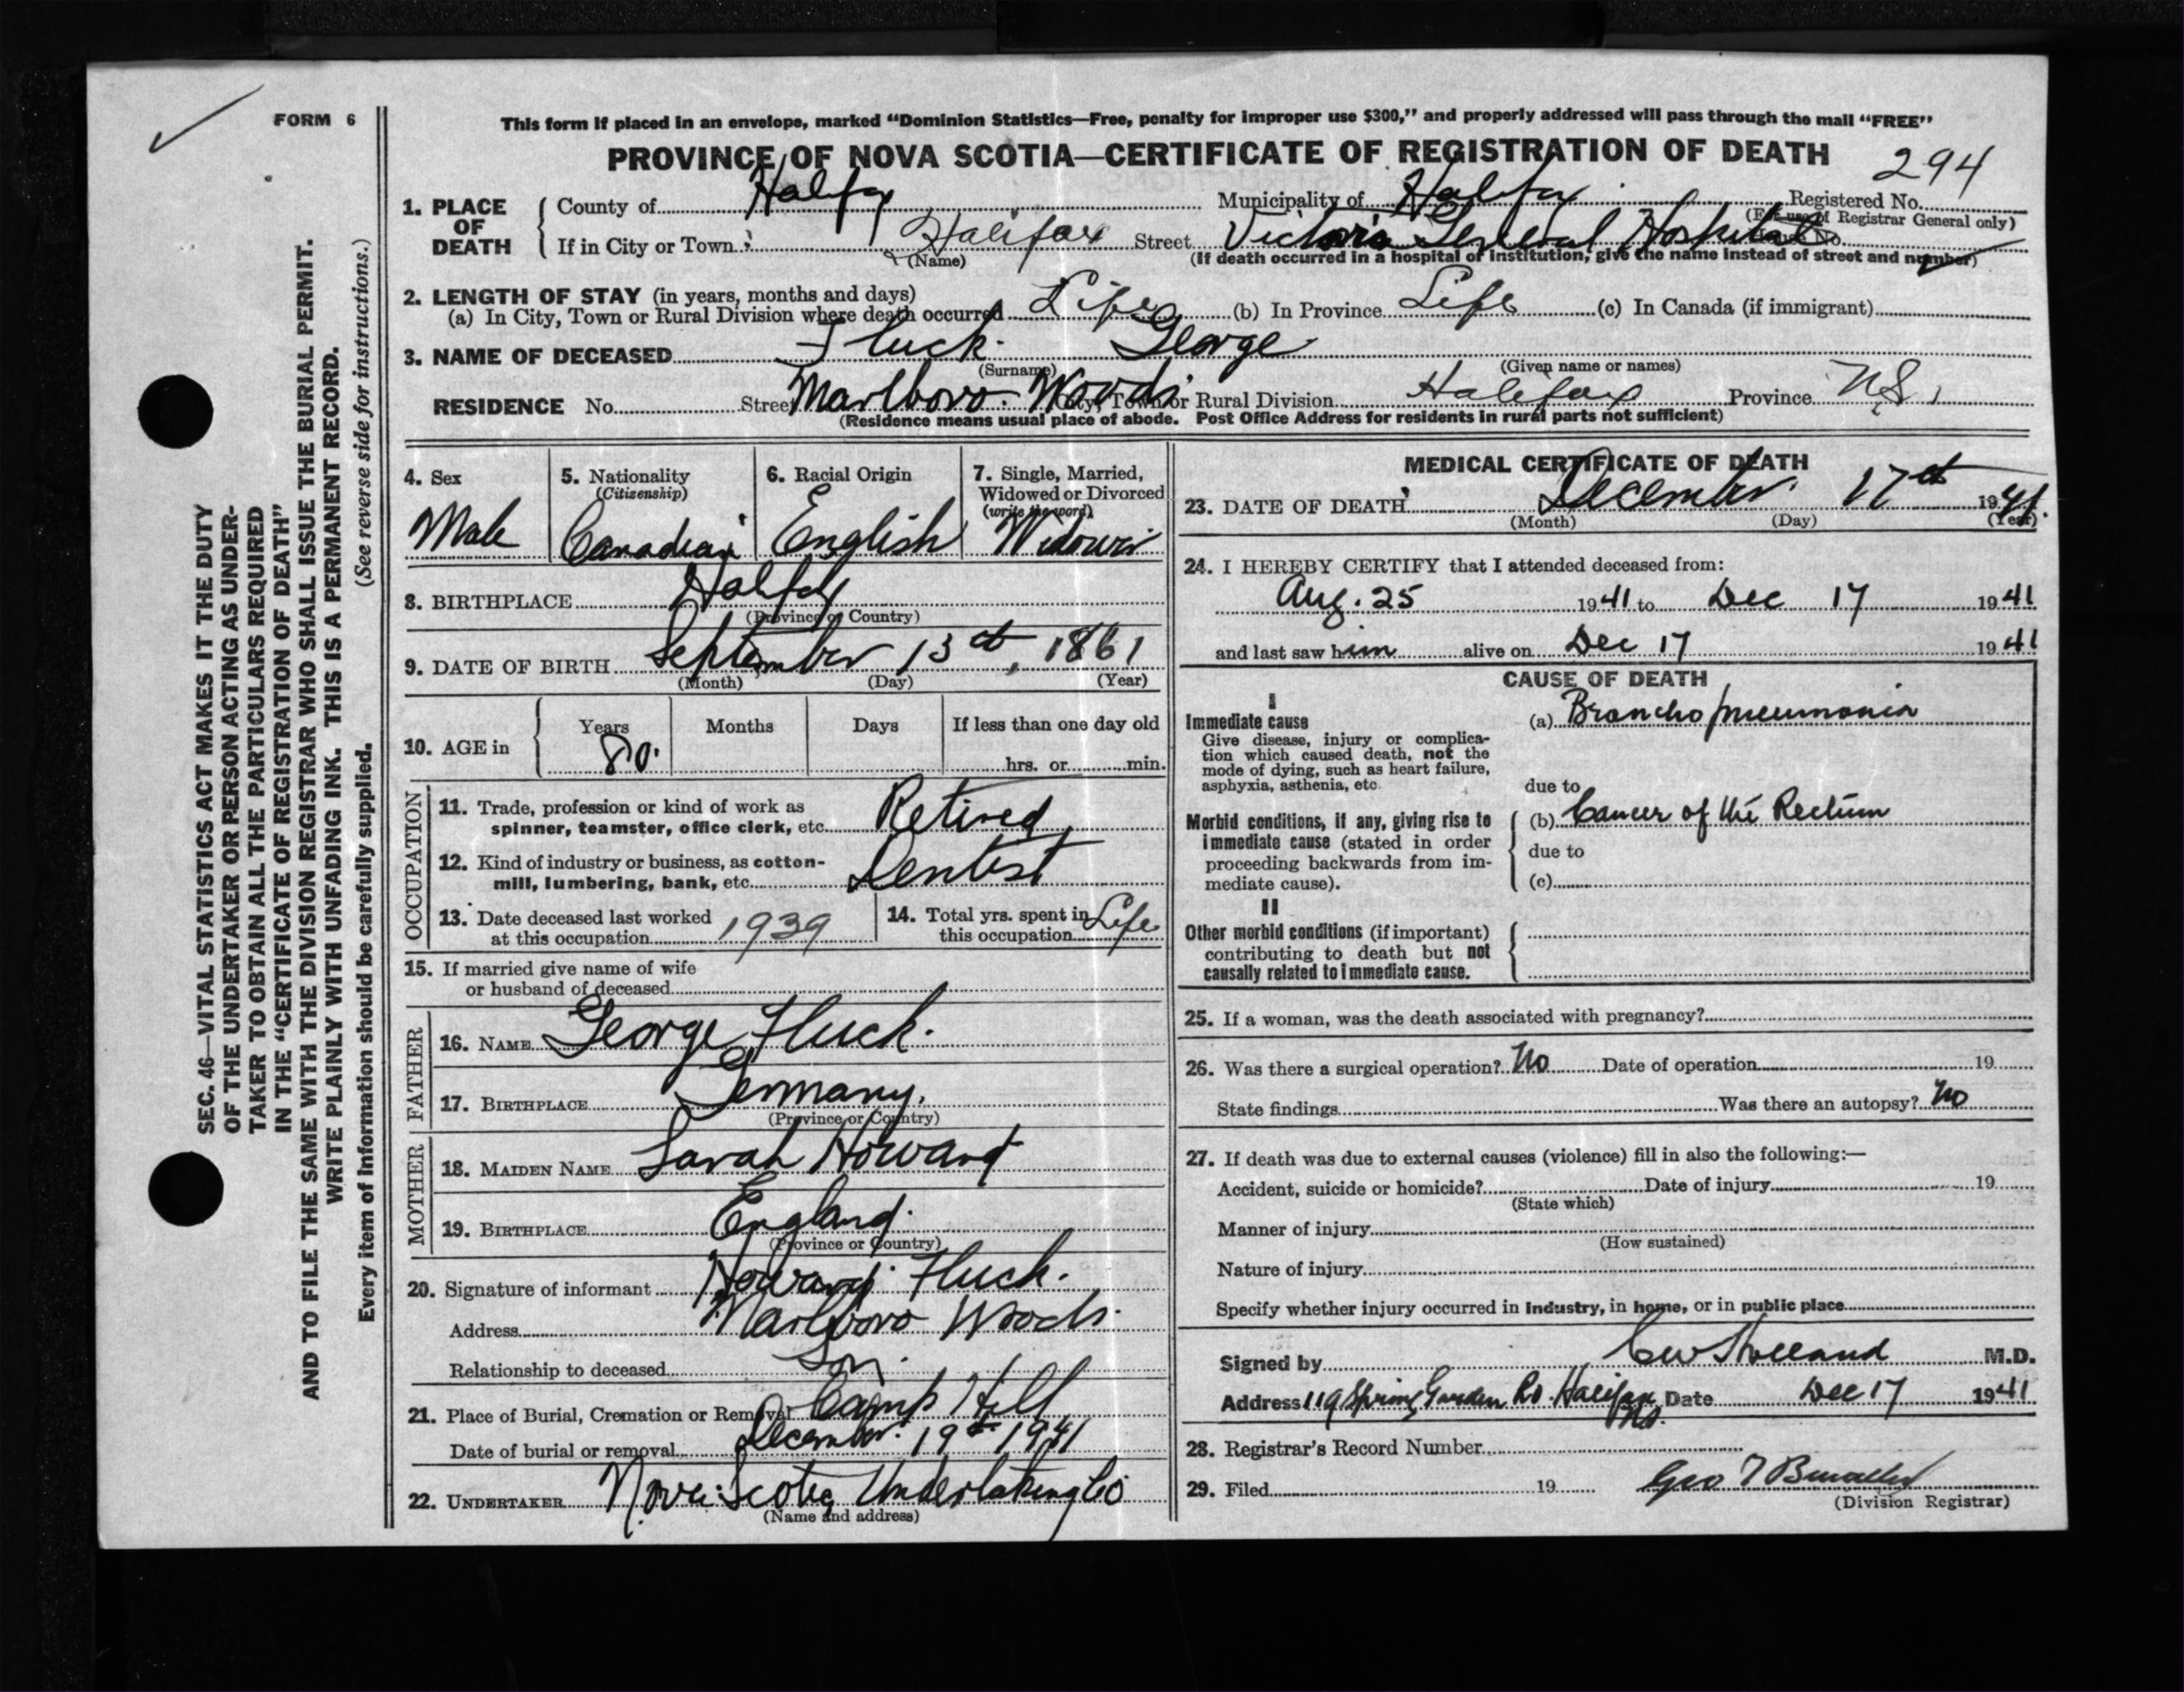 FORM 6
This form if placed in an envelope, marked "Dominion Statistics—Free, penalty for improper use $300," and properly addressed will pass through the mail "FREE"
PROVINCE OF NOVA SCOTIA—CERTIFICATE OF REGISTRATION OF DEATH
294
1. PLACE OF DEATH
County of Halifax Municipality of Halifax Registered No.
(For use of Registrar General only)
If in City or Town Halifax Street Victoria General Hospital House No.
(Name) (If death occurred in a hospital or institution, give the name instead of street and number)
2. LENGTH OF STAY (in years, months and days)
(a) In City, Town or Rural Division where death occurred Life (b) In Province Life (c) In Canada (if immigrant)
3. NAME OF DECEASED Fluck. George
(Surname) (Given name or names)
RESIDENCE No. Street Marlboro. Woods City, Town or Rural Division Halifax Province N.S.
(Residence means usual place of abode. Post Office Address for residents in rural parts not sufficient)
4. Sex
Male
5. Nationality
(Citizenship)
Canadian
6. Racial Origin
English
7. Single, Married,
Widowed or Divorced
(write the word)
Widower
8. BIRTHPLACE Halifax
(Province or Country)
9. DATE OF BIRTH September 13th, 1861
(Month) (Day) (Year)
10. AGE in
Years Months Days If less than one day old
80. hrs. or min.
OCCUPATION
11. Trade, profession or kind of work as
spinner, teamster, office clerk, etc. Retired
12. Kind of industry or business, as cotton-
mill, lumbering, bank, etc. Dentist
13. Date deceased last worked
at this occupation 1939
14. Total yrs. spent in
this occupation Life
15. If married give name of wife
or husband of deceased
FATHER
16. NAME George Fluck.
17. BIRTHPLACE Germany.
(Province or Country)
MOTHER
18. MAIDEN NAME Sarah Howard
19. BIRTHPLACE England.
(Province or Country)
20. Signature of informant Howard Fluck.
Address Marlboro Woods.
Relationship to deceased Son.
21. Place of Burial, Cremation or Removal Camp Hill
Date of burial or removal December. 19th 1941
22. UNDERTAKER Nova Scotia Undertaking Co
(Name and address)
MEDICAL CERTIFICATE OF DEATH
23. DATE OF DEATH December. 17th 1941.
(Month) (Day) (Year)
24. I HEREBY CERTIFY that I attended deceased from:
Aug. 25 1941 to Dec 17 1941
and last saw him alive on Dec 17 1941
CAUSE OF DEATH
I
Immediate cause
Give disease, injury or complica-
tion which caused death, not the
mode of dying, such as heart failure,
asphyxia, asthenia, etc.
(a) Broncho pneumonia
due to
Morbid conditions, if any, giving rise to
immediate cause (stated in order
proceeding backwards from im-
mediate cause).
(b) Cancer of the Rectum
due to
(c)
II
Other morbid conditions (if important)
contributing to death but not
causally related to immediate cause.
25. If a woman, was the death associated with pregnancy?
26. Was there a surgical operation? No Date of operation 19
State findings Was there an autopsy? No
27. If death was due to external causes (violence) fill in also the following:—
Accident, suicide or homicide? Date of injury 19
(State which)
Manner of injury
(How sustained)
Nature of injury
Specify whether injury occurred in industry, in home, or in public place
Signed by M.D.
Address 119 Spring Garden Rd. Halifax NS. Date Dec 17 1941
28. Registrar's Record Number
29. Filed 19 Geo
(Division Registrar)
SEC. 46—VITAL STATISTICS ACT MAKES IT THE DUTY
OF THE UNDERTAKER OR PERSON ACTING AS UNDER-
TAKER TO OBTAIN ALL THE PARTICULARS REQUIRED
IN THE "CERTIFICATE OF REGISTRATION OF DEATH"
AND TO FILE THE SAME WITH THE DIVISION REGISTRAR WHO SHALL ISSUE THE BURIAL PERMIT.
WRITE PLAINLY WITH UNFADING INK. THIS IS A PERMANENT RECORD.
Every item of information should be carefully supplied. (See reverse side for instructions.)